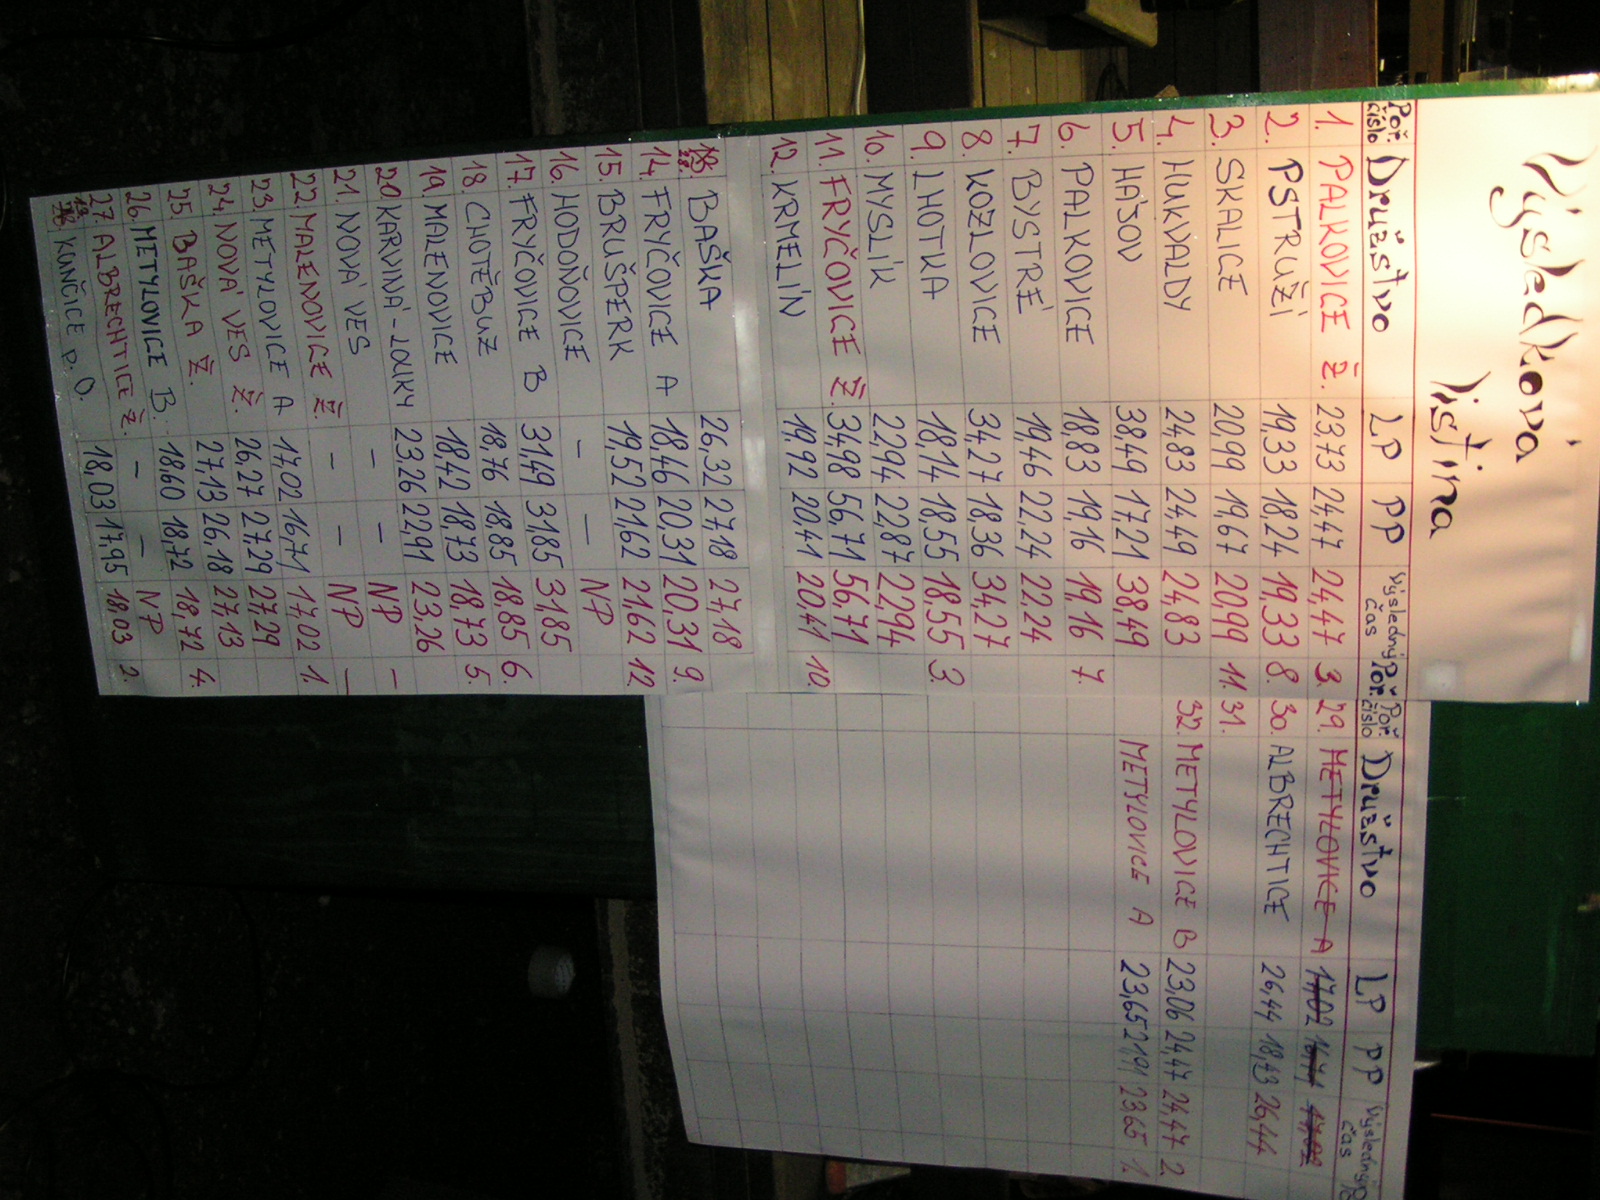 Výsledková
listina
Poř. číslo Družstvo LP PP Výsledný čas Poř.
1. PALKOVICE Ž. 23,73 24,47 24,47 3.
2. PSTRUŽÍ 19,33 18,24 19,33 8.
3. SKALICE 20,99 19,67 20,99 11.
4. HUKVALDY 24,83 24,49 24,83
5. HÁJOV 38,49 17,21 38,49
6. PALKOVICE 18,83 19,16 19,16 7.
7. BYSTRÉ 19,46 22,24 22,24
8. KOZLOVICE 34,27 18,36 34,27
9. LHOTKA 18,14 18,55 18,55 3
10. MYSLÍK 22,94 22,87 22,94
11. FRYČOVICE Ž. 34,98 56,71 56,71
12. KRMELÍN 19,92 20,41 20,41 10.
BAŠKA 26,32 27,18 27,18
14. FRYČOVICE A 18,46 20,31 20,31 9.
15 BRUŠPERK 19,52 21,62 21,62 12.
16. HODOŇOVICE – – NP
17. FRYČOVICE B 31,49 31,85 31,85
18. CHOTĚBUZ 18,76 18,85 18,85 6.
19. MALENOVICE 18,42 18,73 18,73 5.
20. KARVINÁ-LOUKY 23,26 22,91 23,26
21. NOVÁ VES – – NP –
22 MALENOVICE Ž. – – NP –
23. METYLOVICE A 17,02 16,71 17,02 1.
24. NOVÁ VES Ž. 26,27 27,29 27,29
25 BAŠKA Ž. 27,13 26,18 27,13
26. METYLOVICE B 18,60 18,72 18,72 4.
27 ALBRECHTICE Ž. – – NP
KUNČICE P.O. 18,03 17,95 18,03 2.
Poř. číslo Družstvo LP PP Výsledný čas
29. METYLOVICE A 17,02 16,71 17,02
30. ALBRECHTICE 26,44 18,43 26,44
31.
32. METYLOVICE B 23,06 24,47 24,47 2.
METYLOVICE A 23,65 21,91 23,65 1.